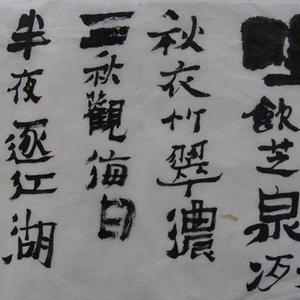 飲芝泉
秋衣竹翠濃
三秋觀海日
半夜逐江湖